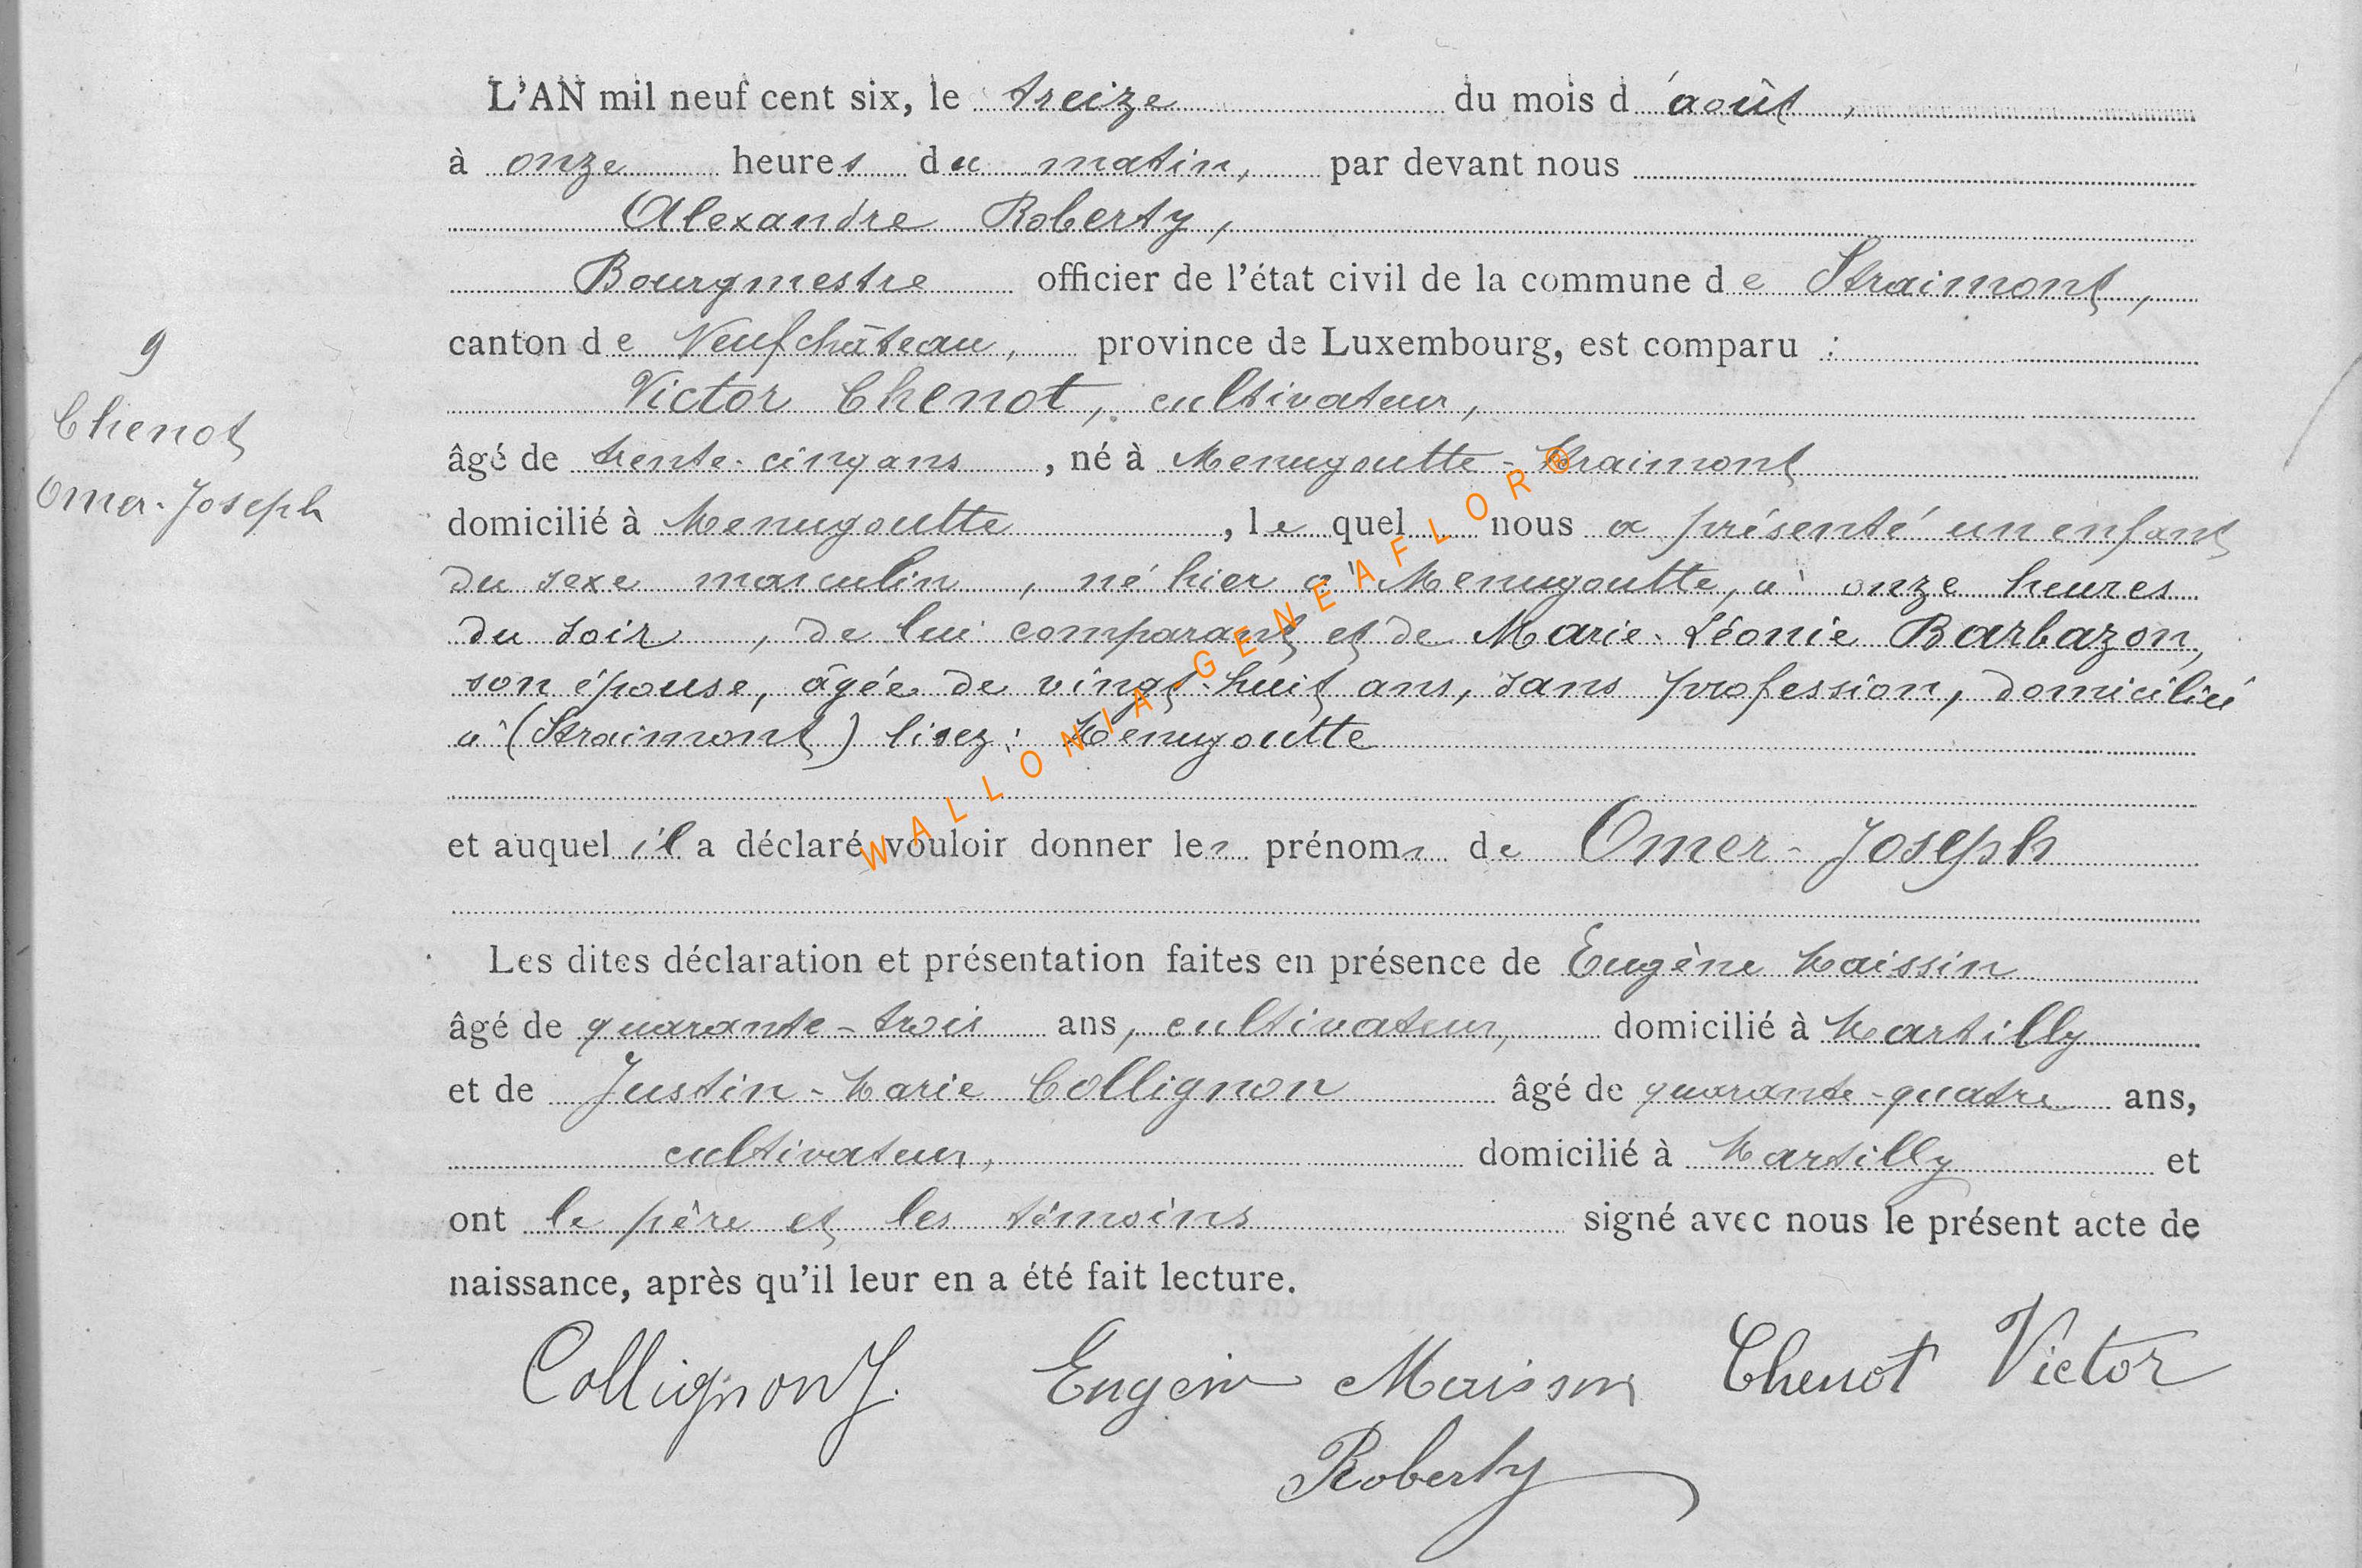 L'AN mil neuf cent six, le treize du mois d'août,
à onze heures du matin, par devant nous
Alexandre Roberty,
Bourgmestre officier de l'état civil de la commune de Straimont,
canton de Neufchâteau, province de Luxembourg, est comparu :
Victor Chenot, cultivateur,
âgé de trente-cinq ans, né à Menugoutte-Straimont
domicilié à Menugoutte, lequel nous a présenté un enfant
du sexe masculin, né hier à Menugoutte, à onze heures
du soir, de lui comparant et de Marie-Léonie Barbazon,
son épouse, âgée de vingt-huit ans, sans profession, domiciliée
à (Straimont) lisez : Menugoutte
et auquel il a déclaré vouloir donner les prénoms de Omer-Joseph
Les dites déclaration et présentation faites en présence de Eugène Maissin
âgé de quarante-trois ans, cultivateur, domicilié à Martilly
et de Justin-Marie Collignon âgé de quarante-quatre ans,
cultivateur, domicilié à Martilly et
ont le père et les témoins signé avec nous le présent acte de
naissance, après qu'il leur en a été fait lecture.
Collignon J. Eugène Maissin Chenot Victor
Roberty
9
Chenot
Omer-Joseph
WALLONIA-GENEAFLOR®